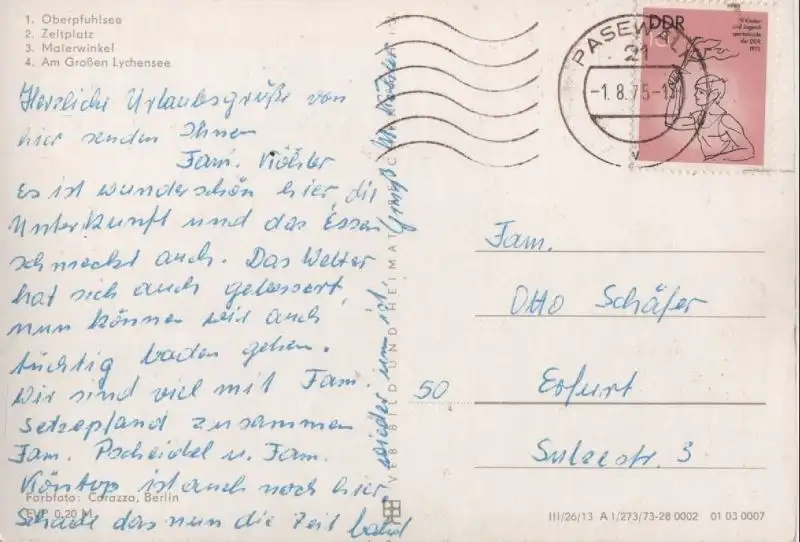 1. Oberpfuhlsee
2. Zeltplatz
3. Malerwinkel
4. Am Großen Lychensee
Herzliche Urlaubsgrüße von
hier senden Ihnen
Fam. Köhler
Es ist wunderschön hier, die
Unterkunft und das Essen
schmeckt auch. Das Wetter
hat sich auch gebessert,
nun können wir auch
tüchtig baden gehen.
Wir sind viel mit Fam.
Setzepfand zusammen
Fam. Pscheidel u. Fam.
Köntop ist auch noch hier
Schade das nun die Zeit bald
wieder um ist.
Gruß
Farbfoto: Carazza, Berlin
EVP 0,20 M
VEB BILD UND HEIMAT
DDR
10
1975
PASEWALK
21
-1.8.75-1
Fam.
Otto Schäfer
50
Erfurt
Sulzestr. 3
III/26/13 A 1/273/73-28 0002 01 03 0007